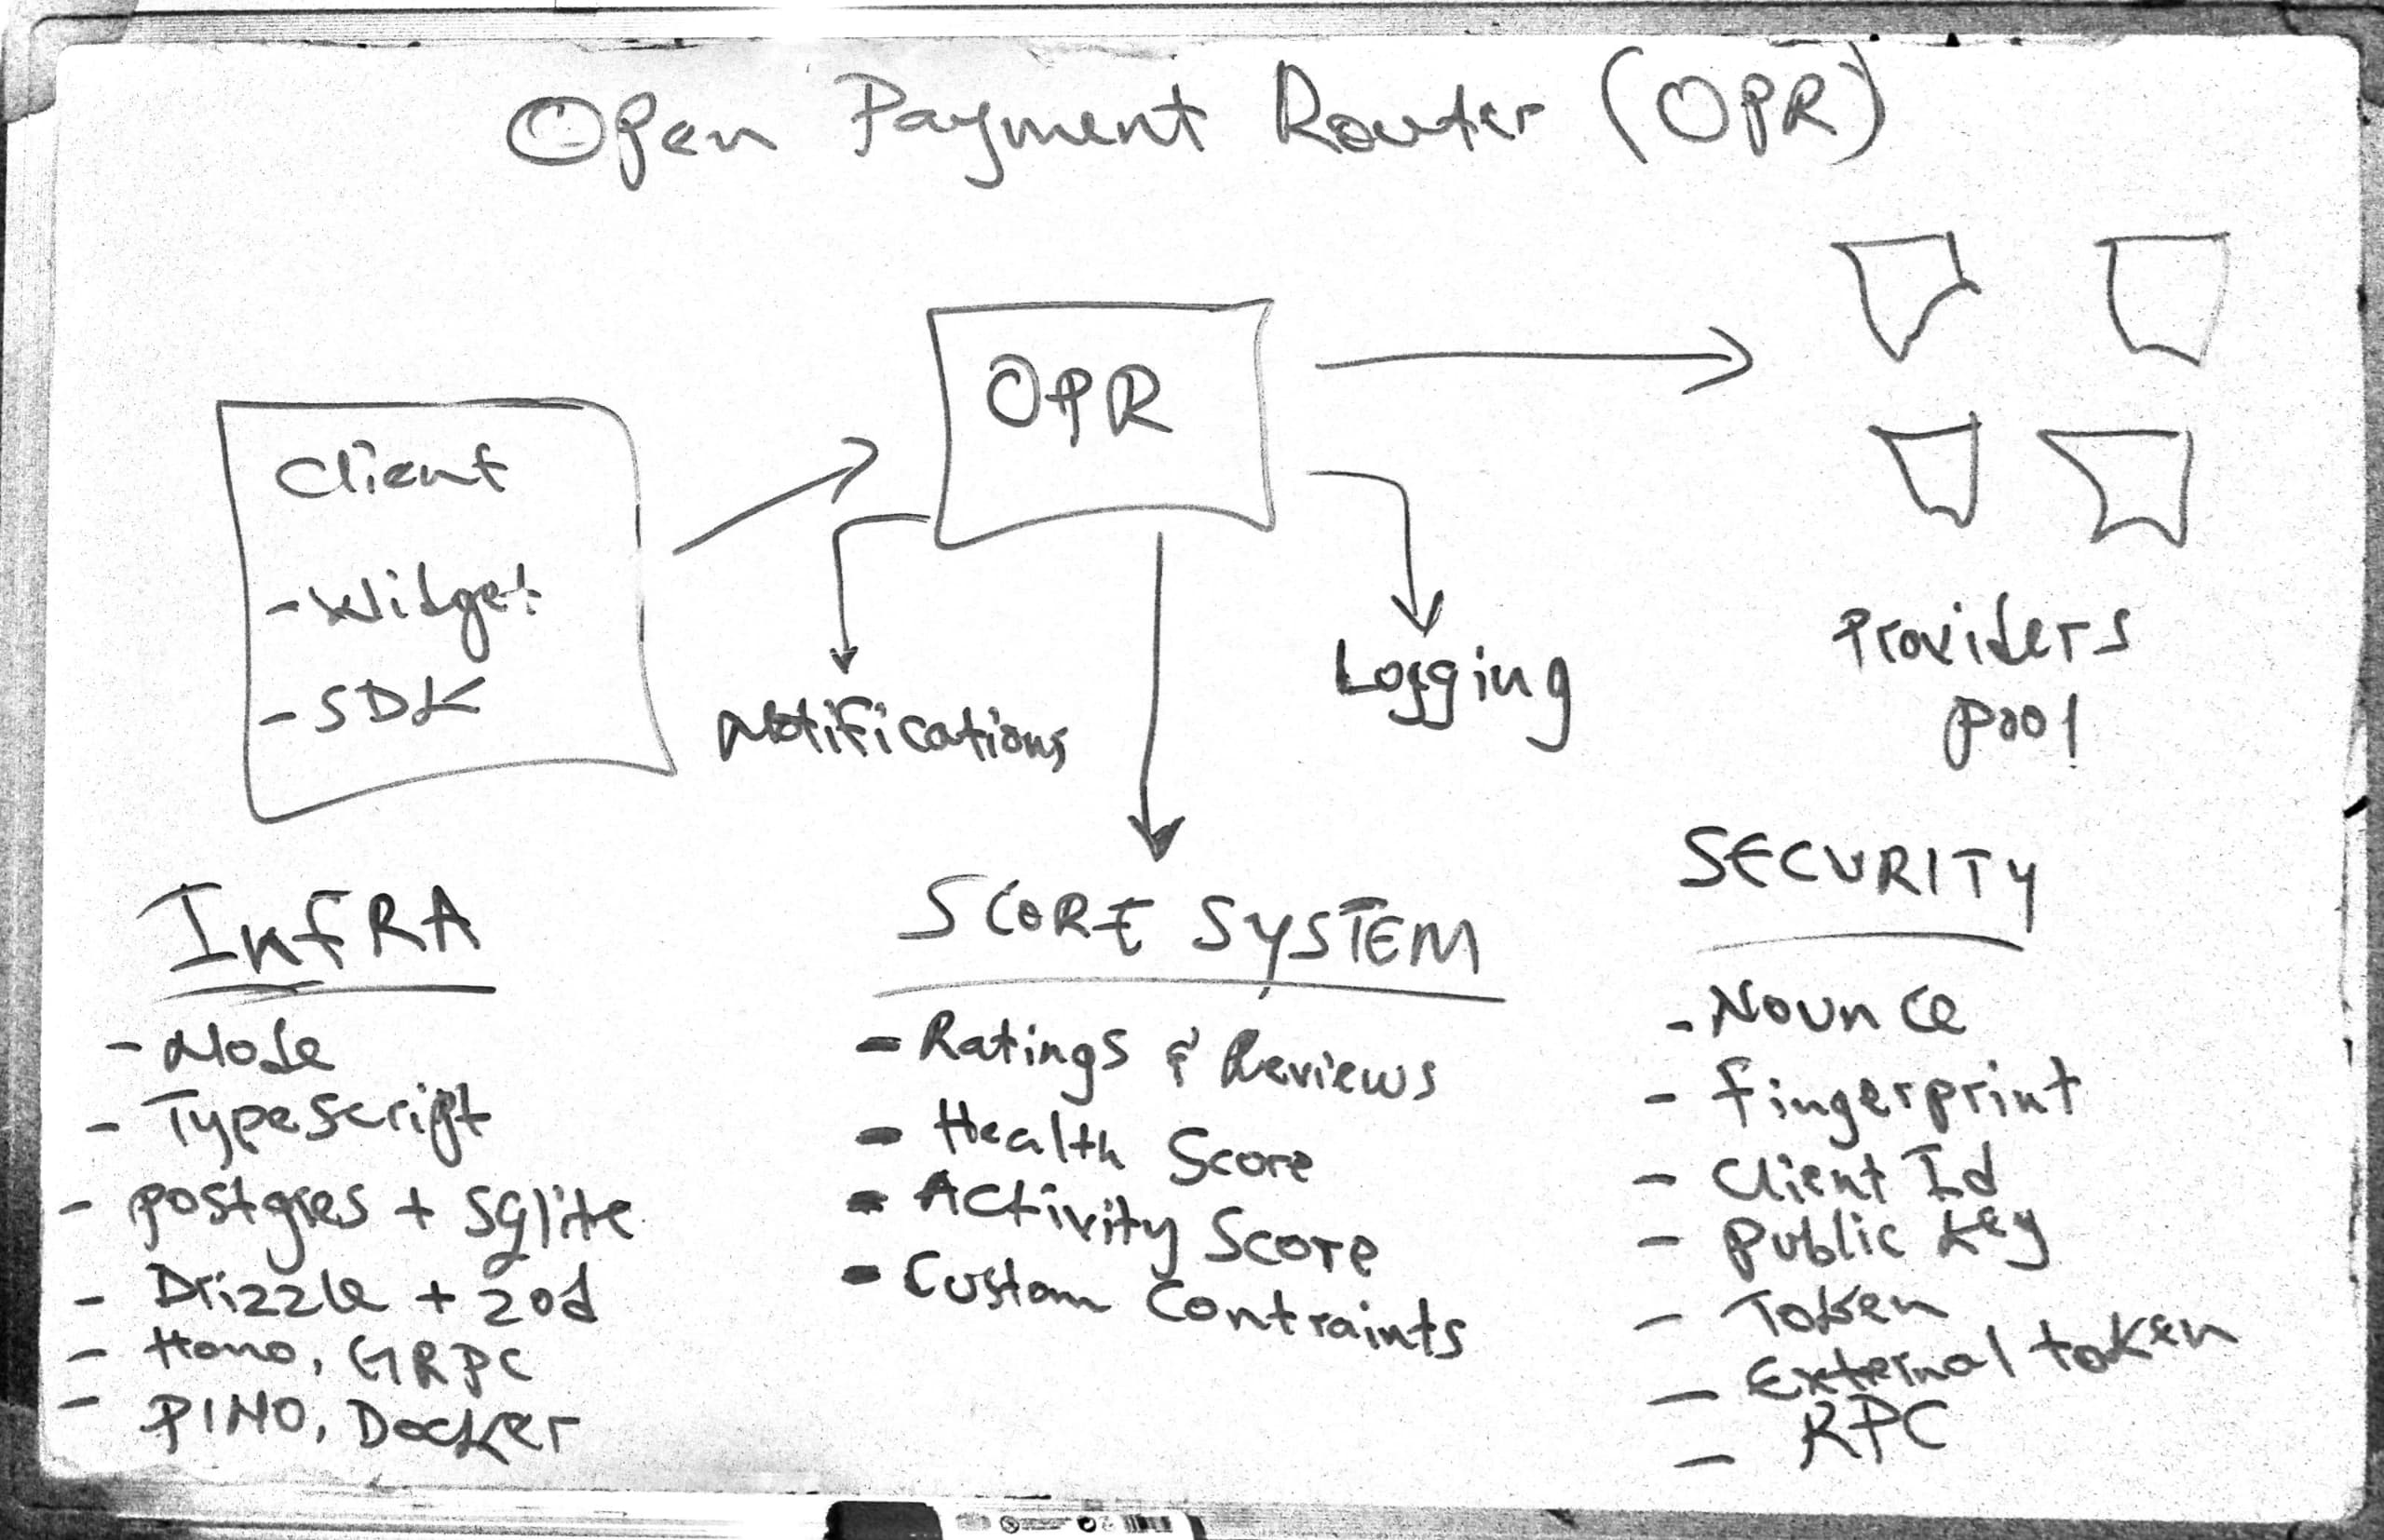 Open Payment Router (OPR)
OPR
Client
- Widget
- SDK
Notifications
Logging
Providers
Pool
INFRA
- Node
- TypeScript
- postgres + Sqlite
- Drizzle + zod
- Hono, GRPC
- PINO, Docker
SCORE SYSTEM
- Ratings & Reviews
- Health Score
- Activity Score
- Custom Contraints
SECURITY
- Nounce
- fingerprint
- Client Id
- Public Key
- Token
- External token
- RPC